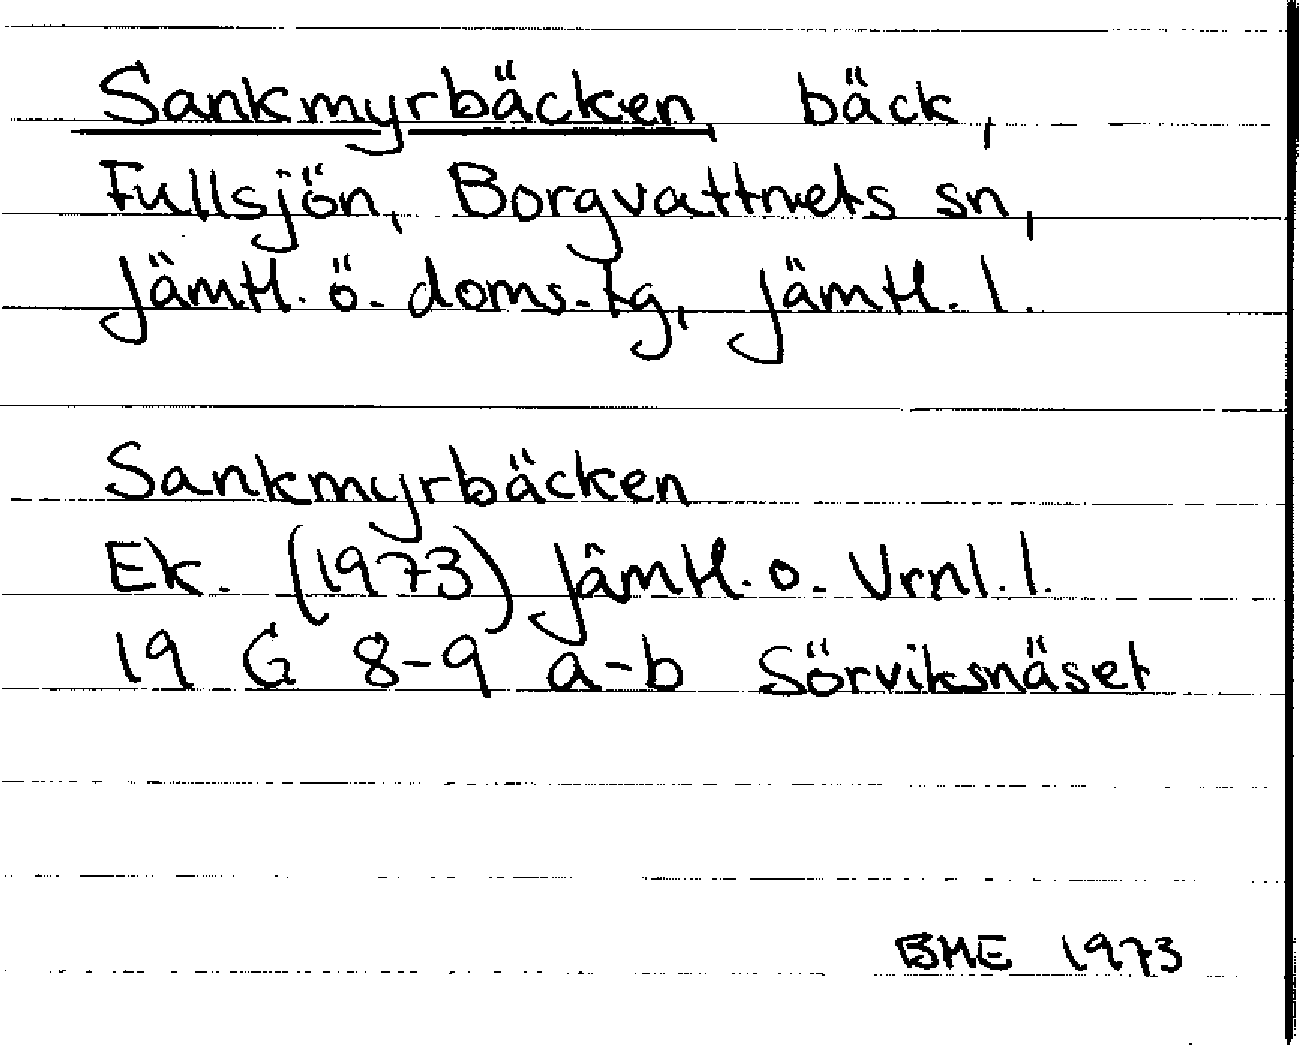 Sankmyrbäcken, bäck,
Fullsjön, Borgvattnets sn,
Jämtl. ö. doms-tg, Jämtl. l.
Sankmyrbäcken
Ek. (1973) Jämtl. o. Vrnl. l.
19 G 8-9 a-b Sörviksnäset
BME 1973